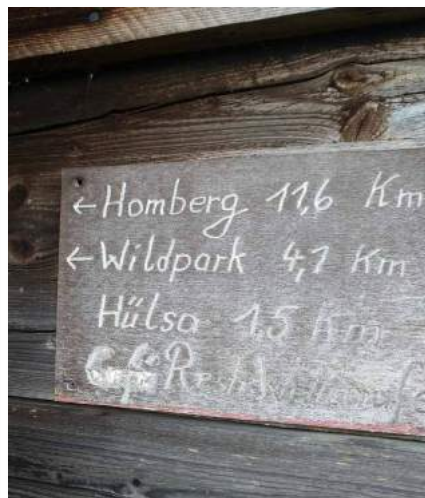 ← Homberg 11,6 Km
← Wildpark 4,1 Km
Hülsa 1,5 Km